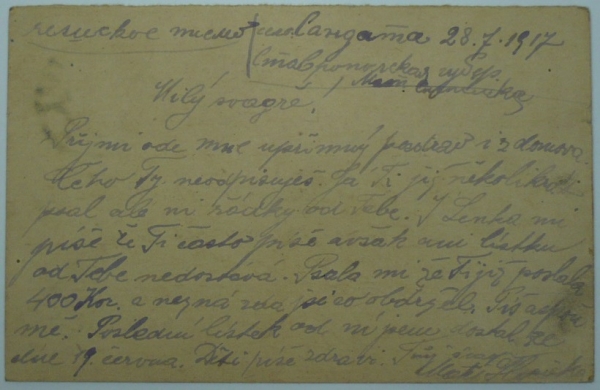 28.7.1917
Milý švagře!
Přijmi ode mne upřímný pozdrav i z domova.
Čeho Ty neodpisuješ. Já Ti již několikrát
psal ale ni řádky od Tebe. I Lenka mi
píše že Ti často píše avšak ani lístku
od Tebe nedostává. Psala mi že Ti již poslala
400 Kor. a nezná zda jsi co obdržel.
mě. Poslední lístek od ní jsem dostal ze
dne 19. června. Děti píše zdraví. Tvůj švagr